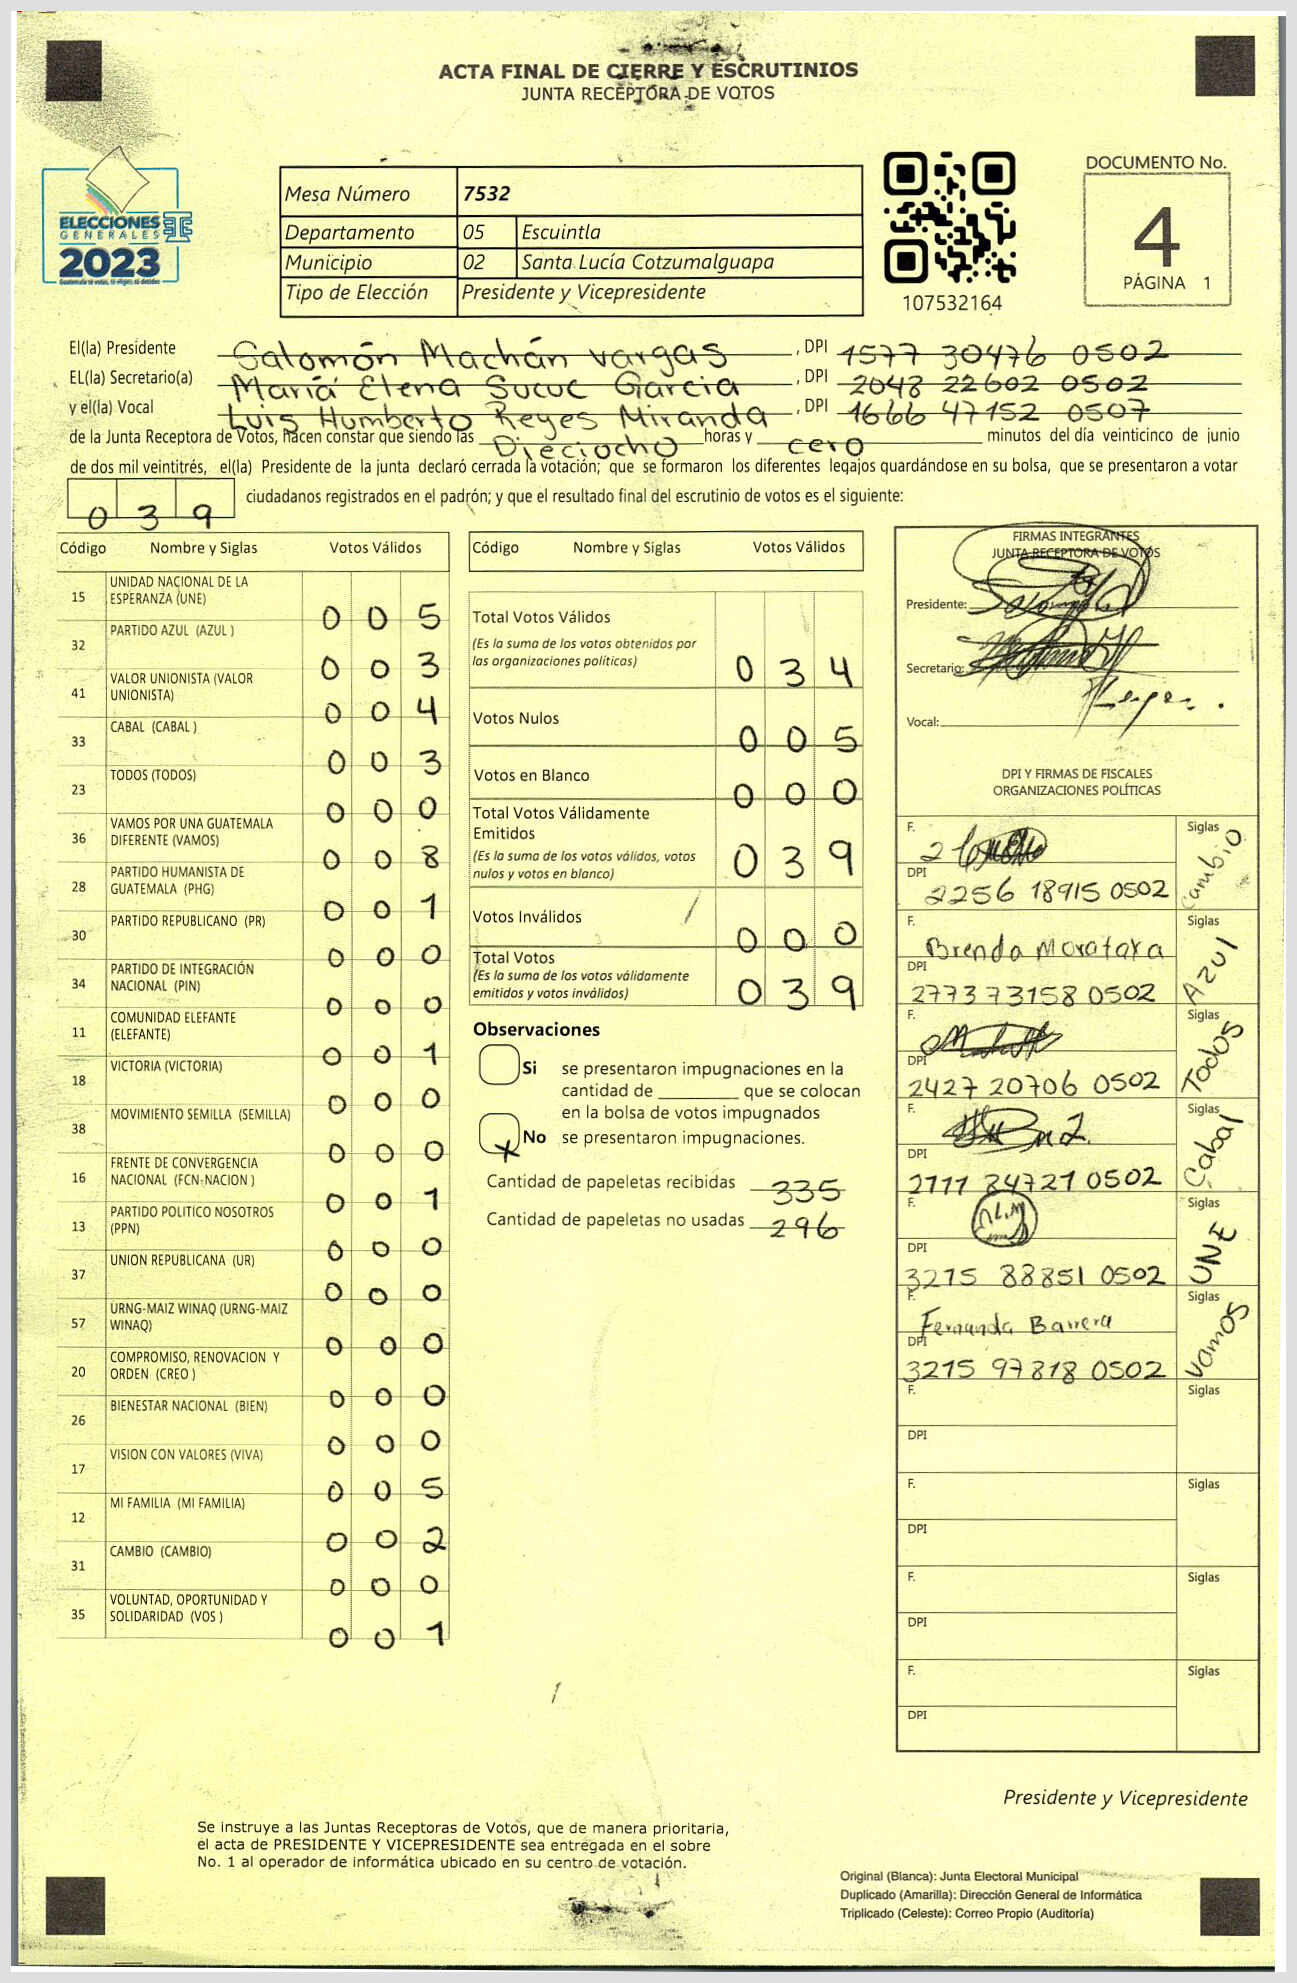 ACTA FINAL DE CIERRE Y ESCRUTINIOS
JUNTA RECEPTORA DE VOTOS
ELECCIONES
GENERALES
2023
Mesa Número 7532
Departamento 05 Escuintla
Municipio 02 Santa Lucía Cotzumalguapa
Tipo de Elección Presidente y Vicepresidente
107532164
DOCUMENTO No.
4
PÁGINA 1
El(la) Presidente Salomón Machán Vargas , DPI 1577 30476 0502
EL(la) Secretario(a) María Elena Sucuc Garcia , DPI 2048 22602 0502
y el(la) Vocal Luis Humberto Reyes Miranda , DPI 1666 47152 0507
de la Junta Receptora de Votos, hacen constar que siendo las Dieciocho horas y cero minutos del día veinticinco de junio
de dos mil veintitrés, el(la) Presidente de la junta declaró cerrada la votación; que se formaron los diferentes legajos quardándose en su bolsa, que se presentaron a votar
039 ciudadanos registrados en el padrón; y que el resultado final del escrutinio de votos es el siguiente:
Código Nombre y Siglas Votos Válidos
15 UNIDAD NACIONAL DE LA ESPERANZA (UNE) 0 0 5
32 PARTIDO AZUL (AZUL ) 0 0 3
41 VALOR UNIONISTA (VALOR UNIONISTA) 0 0 4
33 CABAL (CABAL ) 0 0 3
23 TODOS (TODOS) 0 0 0
36 VAMOS POR UNA GUATEMALA DIFERENTE (VAMOS) 0 0 8
28 PARTIDO HUMANISTA DE GUATEMALA (PHG) 0 0 1
30 PARTIDO REPUBLICANO (PR) 0 0 0
34 PARTIDO DE INTEGRACIÓN NACIONAL (PIN) 0 0 0
11 COMUNIDAD ELEFANTE (ELEFANTE) 0 0 1
18 VICTORIA (VICTORIA) 0 0 0
38 MOVIMIENTO SEMILLA (SEMILLA) 0 0 0
16 FRENTE DE CONVERGENCIA NACIONAL (FCN-NACION ) 0 0 1
13 PARTIDO POLITICO NOSOTROS (PPN) 0 0 0
37 UNION REPUBLICANA (UR) 0 0 0
57 URNG-MAIZ WINAQ (URNG-MAIZ WINAQ) 0 0 0
20 COMPROMISO, RENOVACION Y ORDEN (CREO ) 0 0 0
26 BIENESTAR NACIONAL (BIEN) 0 0 0
17 VISION CON VALORES (VIVA) 0 0 5
12 MI FAMILIA (MI FAMILIA) 0 0 2
31 CAMBIO (CAMBIO) 0 0 0
35 VOLUNTAD, OPORTUNIDAD Y SOLIDARIDAD (VOS ) 0 0 1
Código Nombre y Siglas Votos Válidos
Total Votos Válidos
(Es la suma de los votos obtenidos por
las organizaciones políticas) 0 3 4
Votos Nulos 0 0 5
Votos en Blanco 0 0 0
Total Votos Válidamente
Emitidos
(Es la suma de los votos válidos, votos
nulos y votos en blanco) 0 3 9
Votos Inválidos 0 0 0
Total Votos
(Es la suma de los votos válidamente
emitidos y votos inválidos) 0 3 9
Observaciones
Si se presentaron impugnaciones en la
cantidad de ________ que se colocan
en la bolsa de votos impugnados
X No se presentaron impugnaciones.
Cantidad de papeletas recibidas 335
Cantidad de papeletas no usadas 296
FIRMAS INTEGRANTES
JUNTA RECEPTORA DE VOTOS
Presidente:
Secretario:
Vocal:
DPI Y FIRMAS DE FISCALES
ORGANIZACIONES POLÍTICAS
F. Siglas Cambio
DPI 2256 18915 0502
F. Brenda Morataya Siglas Azul
DPI 2773 73158 0502
F. Siglas Todos
DPI 2427 20706 0502
F. Siglas Cabal
DPI 2111 84721 0502
F. Siglas UNE
DPI 3215 88851 0502
F. Fernanda Barrera Siglas Vamos
DPI 3215 97818 0502
F. Siglas
DPI
F. Siglas
DPI
F. Siglas
DPI
F. Siglas
DPI
Presidente y Vicepresidente
Se instruye a las Juntas Receptoras de Votos, que de manera prioritaria,
el acta de PRESIDENTE Y VICEPRESIDENTE sea entregada en el sobre
No. 1 al operador de informática ubicado en su centro de votación.
Original (Blanca): Junta Electoral Municipal
Duplicado (Amarilla): Dirección General de Informática
Triplicado (Celeste): Correo Propio (Auditoría)